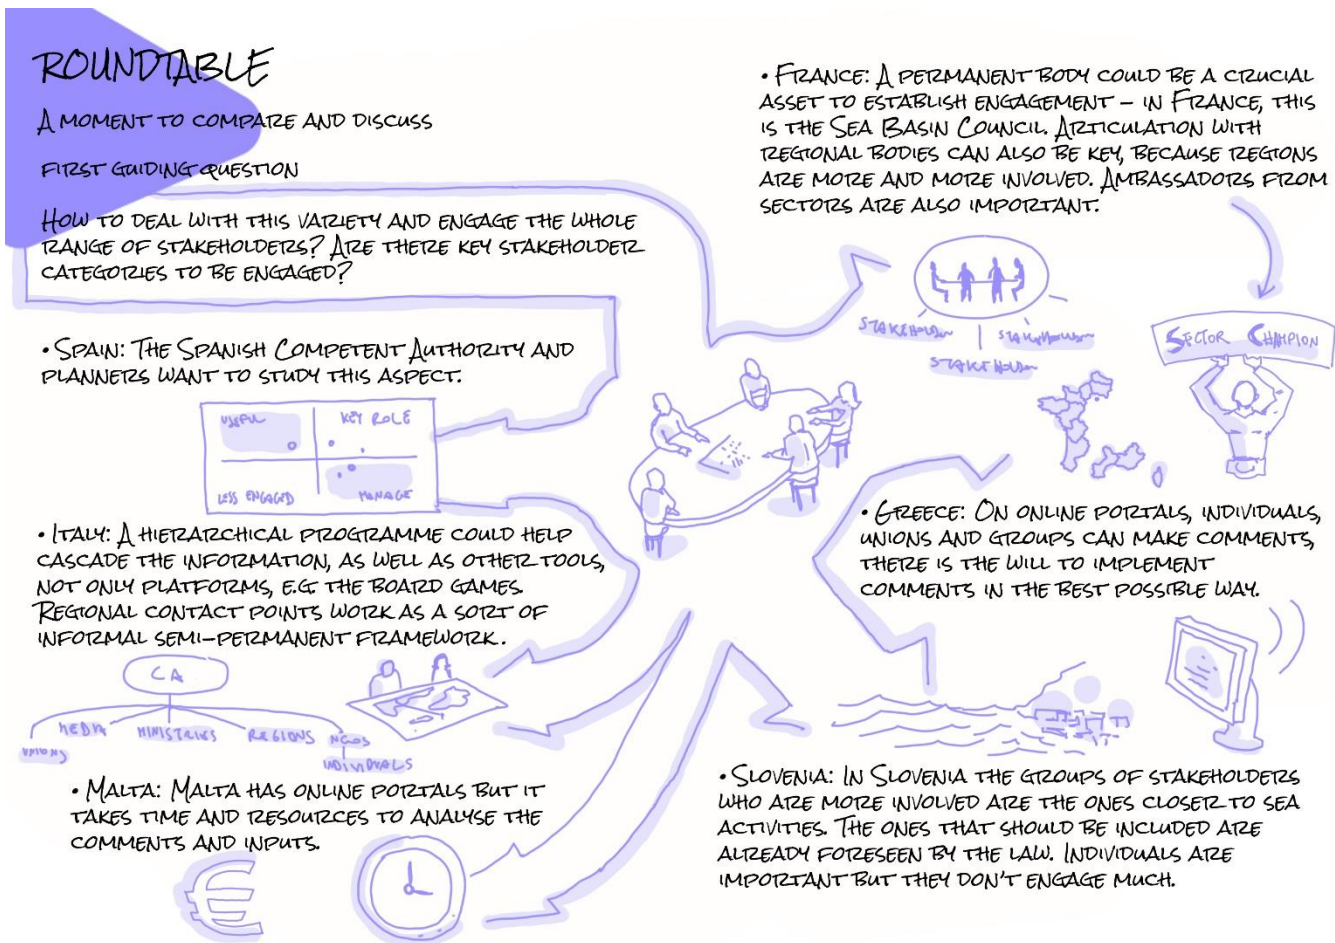 ROUNDTABLE
A MOMENT TO COMPARE AND DISCUSS
FIRST GUIDING QUESTION
HOW TO DEAL WITH THIS VARIETY AND ENGAGE THE WHOLE
RANGE OF STAKEHOLDERS? ARE THERE KEY STAKEHOLDER
CATEGORIES TO BE ENGAGED?
• SPAIN: THE SPANISH COMPETENT AUTHORITY AND
PLANNERS WANT TO STUDY THIS ASPECT.
USEFUL
KEY ROLE
LESS ENGAGED
MANAGE
• ITALY: A HIERARCHICAL PROGRAMME COULD HELP
CASCADE THE INFORMATION, AS WELL AS OTHER TOOLS,
NOT ONLY PLATFORMS, E.G. THE BOARD GAMES.
REGIONAL CONTACT POINTS WORK AS A SORT OF
INFORMAL SEMI-PERMANENT FRAMEWORK.
CA
UNIONS
MEDIA
MINISTRIES
REGIONS
NGOS
INDIVIDUALS
• MALTA: MALTA HAS ONLINE PORTALS BUT IT
TAKES TIME AND RESOURCES TO ANALYSE THE
COMMENTS AND INPUTS.
€
• FRANCE: A PERMANENT BODY COULD BE A CRUCIAL
ASSET TO ESTABLISH ENGAGEMENT – IN FRANCE, THIS
IS THE SEA BASIN COUNCIL. ARTICULATION WITH
REGIONAL BODIES CAN ALSO BE KEY, BECAUSE REGIONS
ARE MORE AND MORE INVOLVED. AMBASSADORS FROM
SECTORS ARE ALSO IMPORTANT.
STAKEHOLDER
STAKEHOLDER
STAKEHOLDER
SECTOR CHAMPION
• GREECE: ON ONLINE PORTALS, INDIVIDUALS,
UNIONS AND GROUPS CAN MAKE COMMENTS,
THERE IS THE WILL TO IMPLEMENT
COMMENTS IN THE BEST POSSIBLE WAY.
• SLOVENIA: IN SLOVENIA THE GROUPS OF STAKEHOLDERS
WHO ARE MORE INVOLVED ARE THE ONES CLOSER TO SEA
ACTIVITIES. THE ONES THAT SHOULD BE INCLUDED ARE
ALREADY FORESEEN BY THE LAW. INDIVIDUALS ARE
IMPORTANT BUT THEY DON'T ENGAGE MUCH.